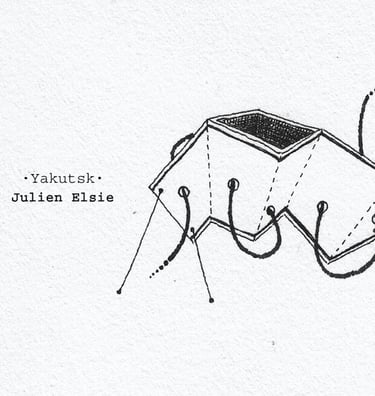 ·Yakutsk·
Julien Elsie